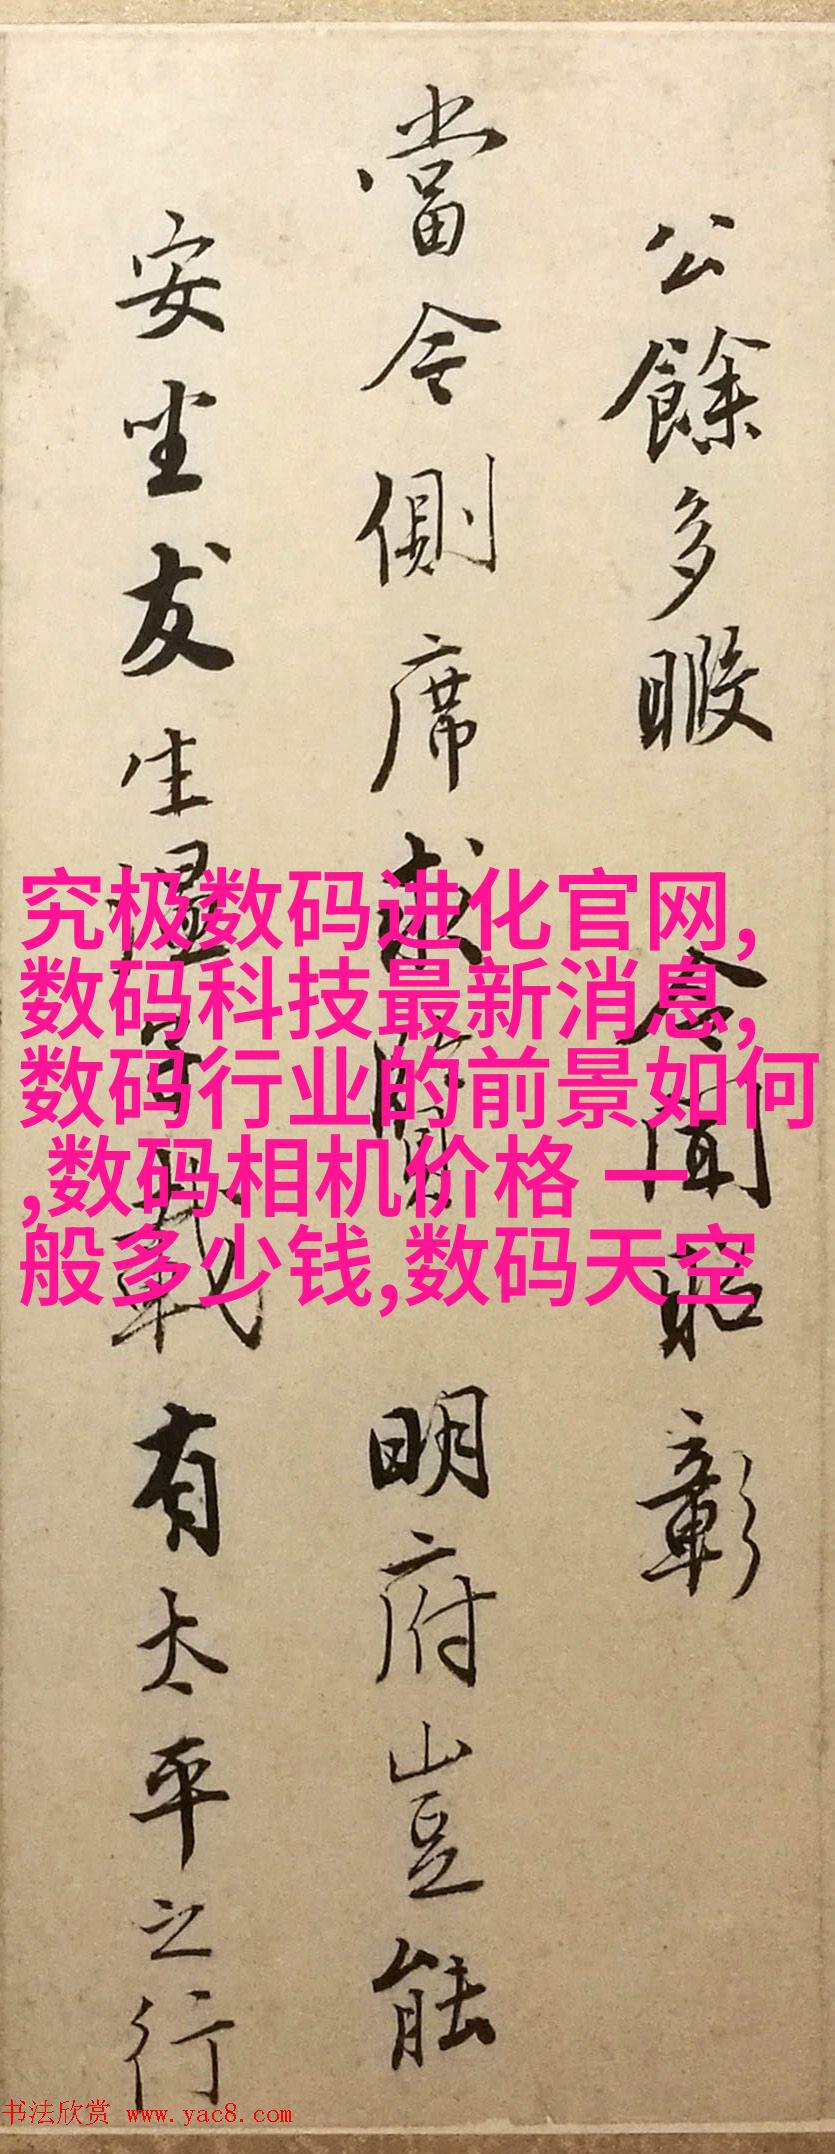 公餘多暇 令聞昭彰
當今側席求賢 明府豈能
安坐友生 有太平之行
究极数码进化官网,
数码科技最新消息,
数码行业的前景如何
,数码相机价格 一
般多少钱,数码天空
书法欣赏 www.yac8.com